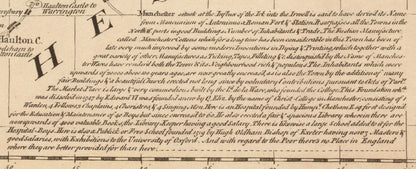 Chanteloo to
Warrington
Haulton C.
H E S
Manchester situate at the Influx of the Irk into the Irwell is said to have deriv'd its Name
from Mancunium of Antoninus a Roman Port & Station. It surpasses all the Towns in
the North of ports in good Buildings, Number of Inhabitants & Trade. The Fustian Manufacture
called Manchester Cottons which for a long time has been considerable in this Town has been of
late very much improv'd by some modern Inventions in Dying & Printing, which together with a
great variety of other Manufactures, as Ticking, Tapes, Filleting &c. distinguish'd by the Name of Manches-
ter Wares have render'd both the Town & its Neighbourhood rich & populous. The Inhabitants which were
upwards of 20000 above 20 years ago, are now greatly increas'd as is also the Town by the addition of many
fair Buildings & a beautiful Church erected not long since by voluntary Contributions, pursuant to Acts of Parl.t
The Market Place is large & very commodious, built by the L.d de la Ware, who founded the College. This Foundation wh.ch
was dissolv'd in 1547 by Edward VI was founded anew by Q. Eliz. by the name of Christ College in Manchester, consisting of 1
Warden, 4 Fellows, 2 Chaplains, 4 Choristers & 4 Singing-Men. Here is an Hospital founded by Humph. Chetham Esq. first design'd
for the Education & Maintenance of 40 Boys but since encreas'd to 60. He also erected a fair & spacious Library wherein there are
now upwards of 4000 valuable Books, the Library Keeper having a good Salary. There is likewise a large School added to it for the
Hospital-Boys. Here is also a Publick or Free School founded 1519 by Hugh Oldham Bishop of Exeter having now 3 Masters &
good Salaries, with Exhibitions to the University of Oxford. And with regard to the Poor there's no Place in England
where they are better provided for than here.